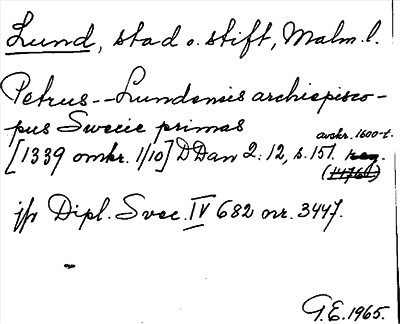 Lund, stad o. stift, Malm. l.
Petrus -- Lundensis archiepisco-
pus Swecie primas
avskr. 1600-t.
[1339 omkr. 1/10] D Dan 2:12, s. 151. reg.
jfr Dipl. Svec. IV 682 nr. 3447.
G.E. 1965.